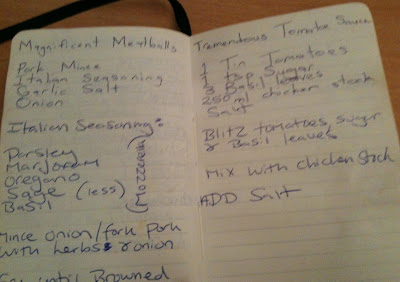 Magnificent Meatballs
Pork Mince
Italian Seasoning
Garlic Salt
Onion
Italian Seasoning:
Parsley
Marjoram
Oregano
Sage (less)
Basil
(Mozzerella)
Mince onion/fork Pork
with herbs & onion
until Browned
Tremendous Tomato Sauce
1 Tin Tomatoes
1 tsp Sugar
3 Basil leaves
250 ml chicken stock
Salt
Blitz tomatoes, sugar
& Basil leaves
Mix with chicken stock
ADD Salt